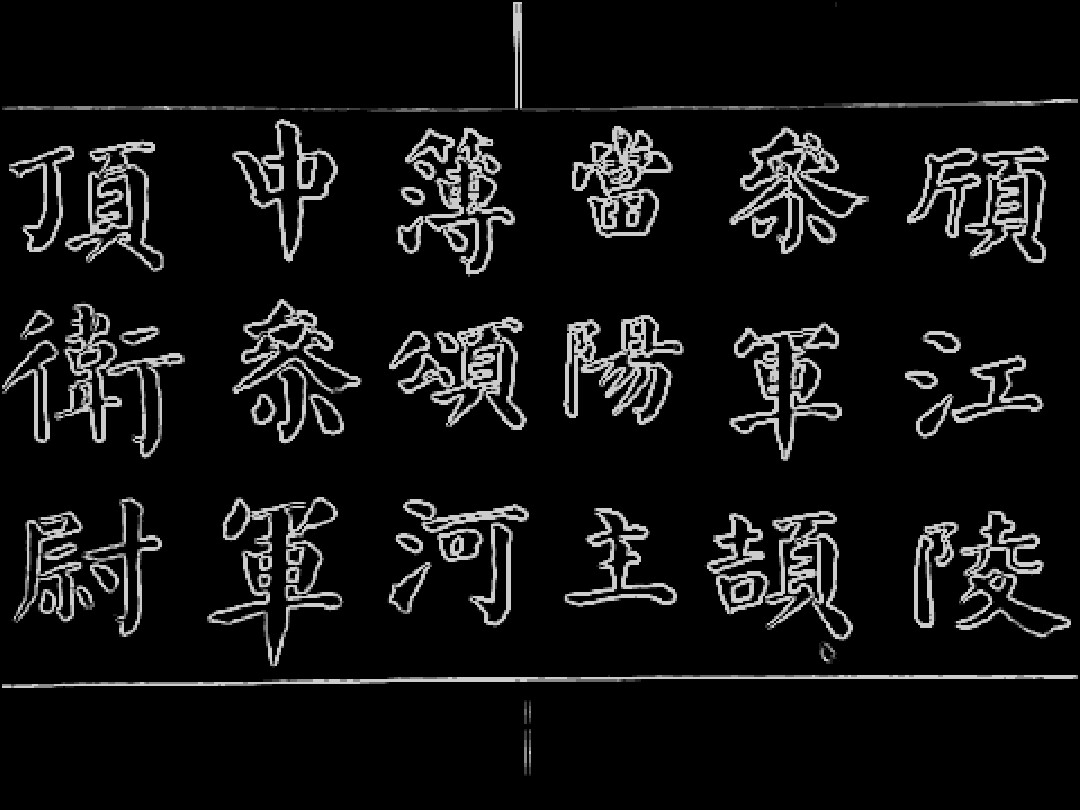 頎江陵
參軍頡
當陽主
簿頌河
中參軍
頂衛尉